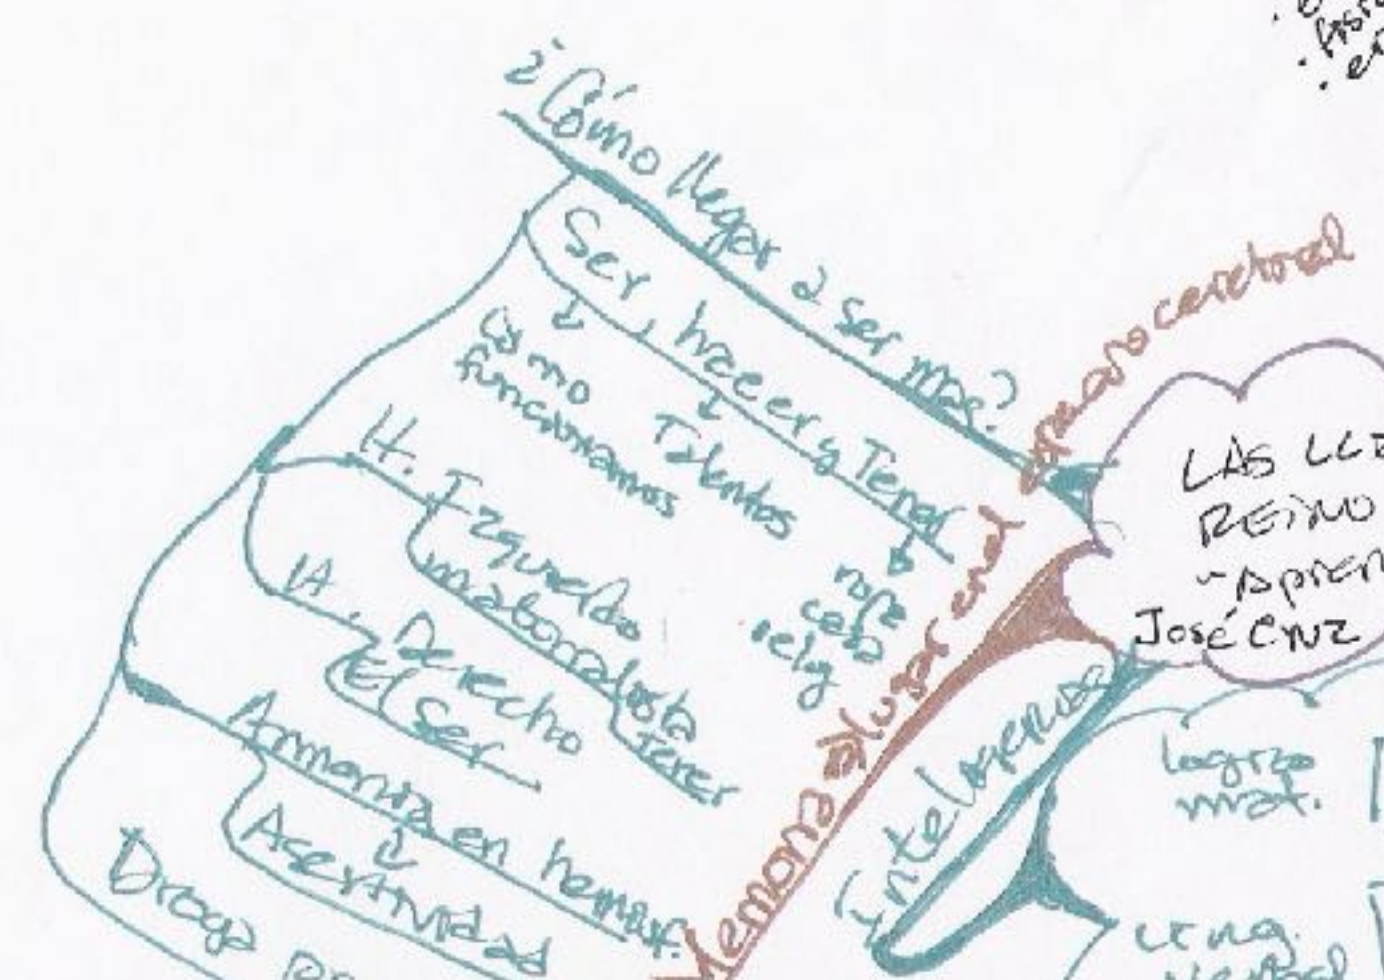 ¿Cómo llegar a ser más?
Ser, hacer y Tener
Cómo
funcionamos
Talentos
ropa
casa
H. Izquierdo
Tener
H. Derecho
El Ser
Armonía en hemisf.
Asertividad
Droga
Memoria es lugar en el
espacio cerebral
Inteligencias
LAS
REINO
José Cruz
logico
mat.
Ling.